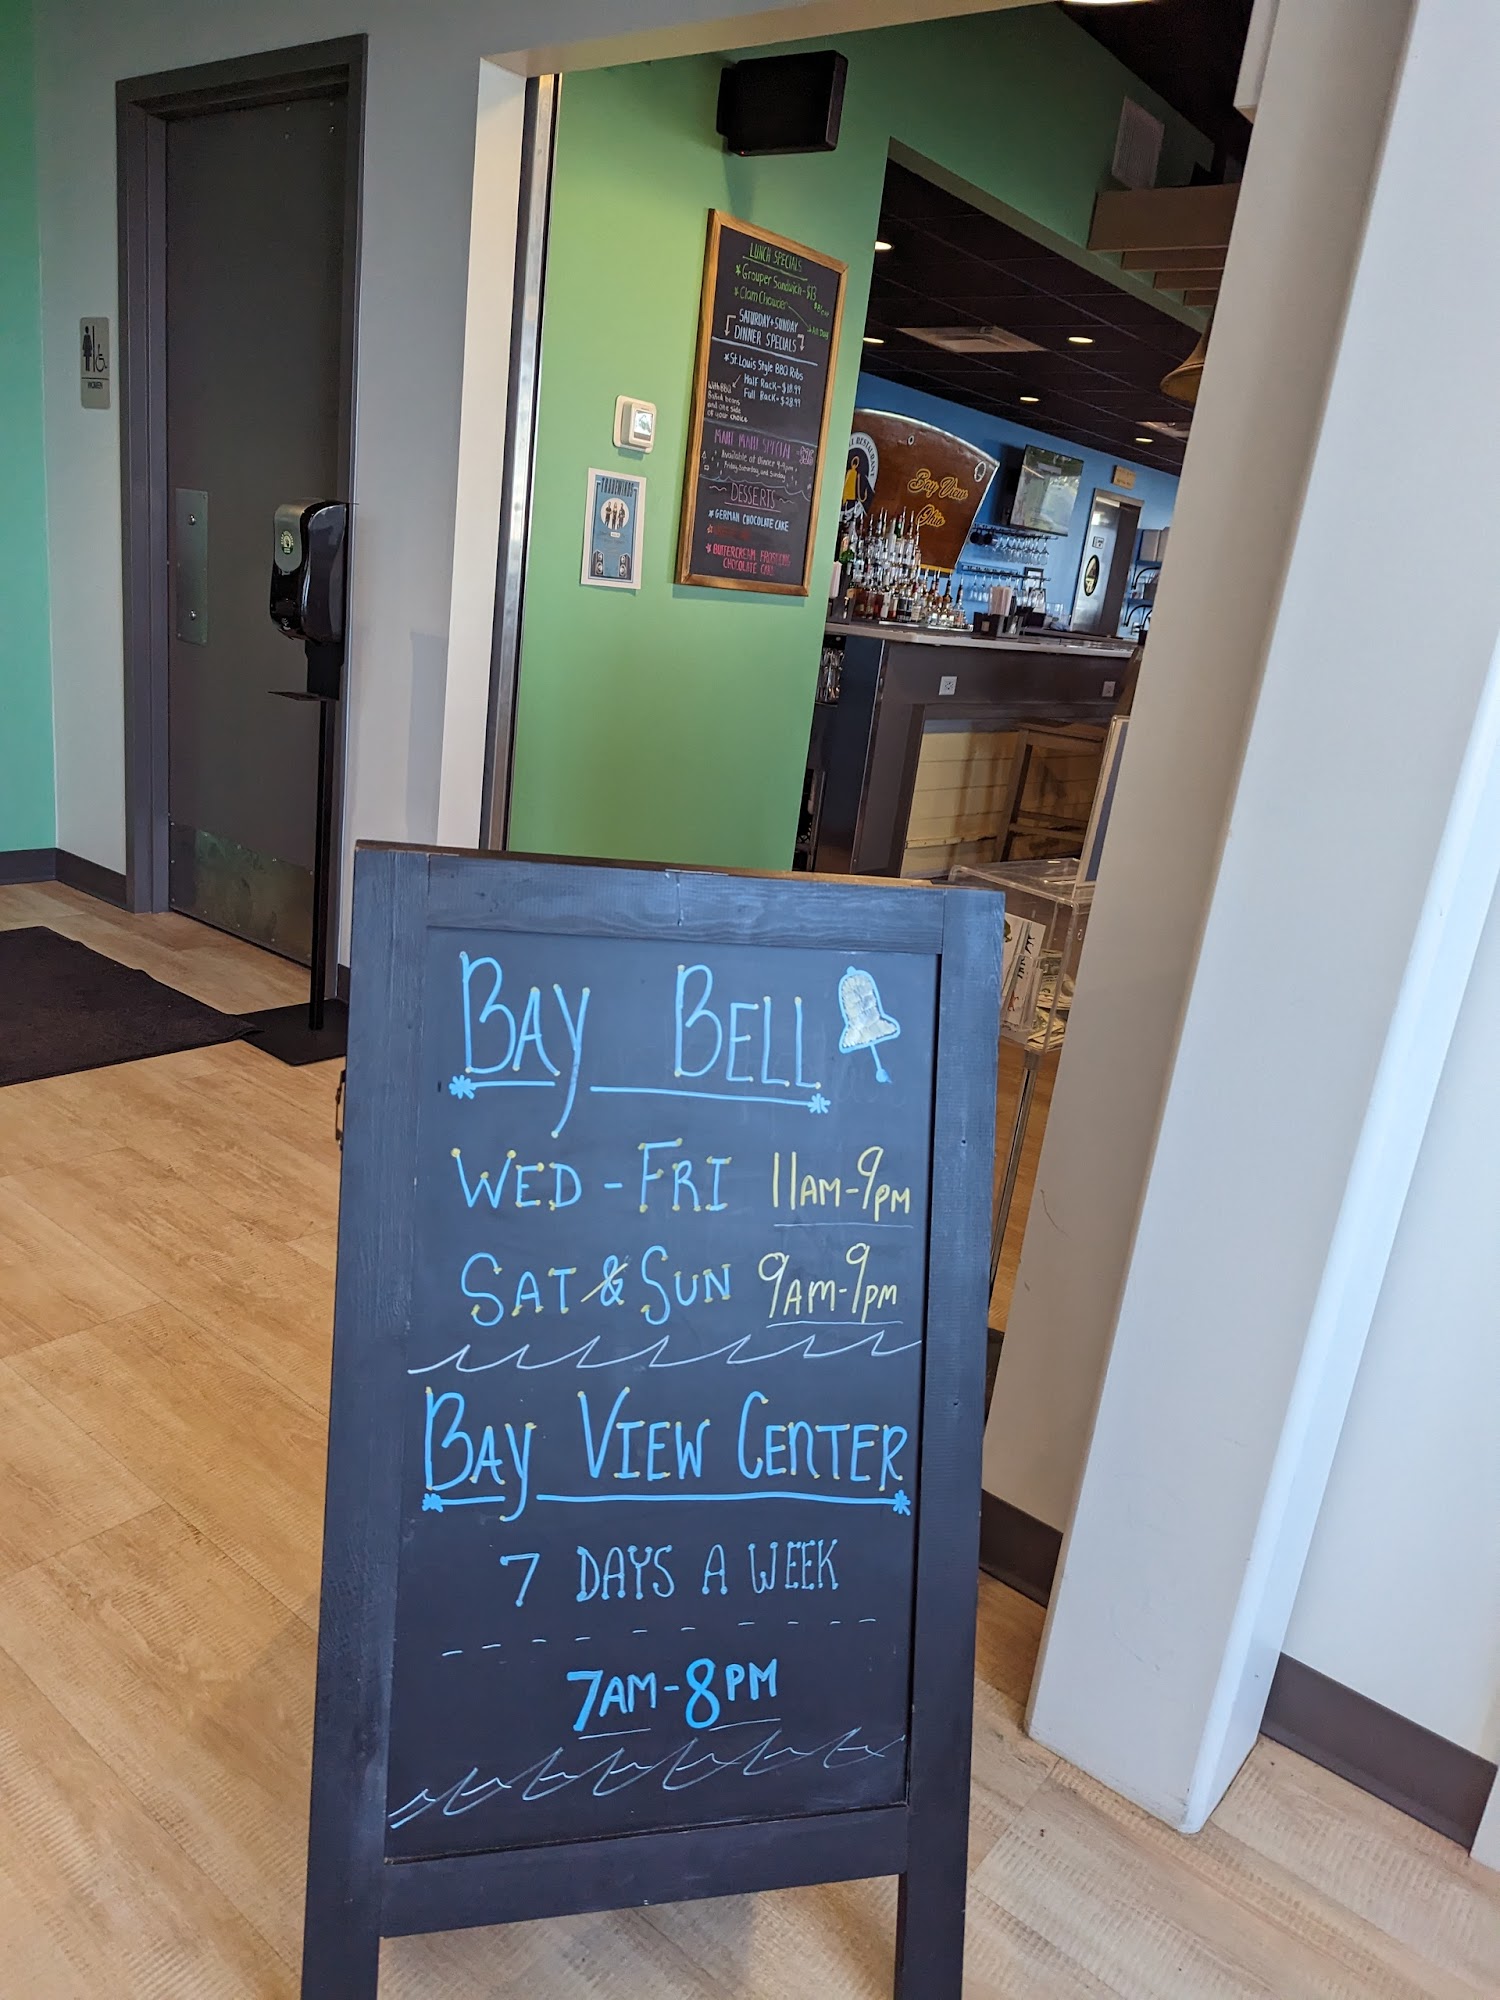 WOMEN
LUNCH SPECIALS
* Grouper Sandwich - $13
* Clam Chowder
SATURDAY + SUNDAY
DINNER SPECIALS
* St. Louis Style BBQ Ribs
Half Rack - $18.99
Full Rack - $28.99
With BBQ
Baked beans
and one side
of your choice
MAHI MAHI SPECIAL
Available at Dinner 4-9pm
Friday, Saturday, and Sunday
DESSERTS
* GERMAN CHOCOLATE CAKE
* BUTTERCREAM FROSTING
CHOCOLATE CAKE
TRADEWINDS
RESTAURANT
Bay View
Ohio
BAY BELL
WED - FRI 11AM-9PM
SAT & SUN 9AM-9PM
BAY VIEW CENTER
7 DAYS A WEEK
7AM-8PM